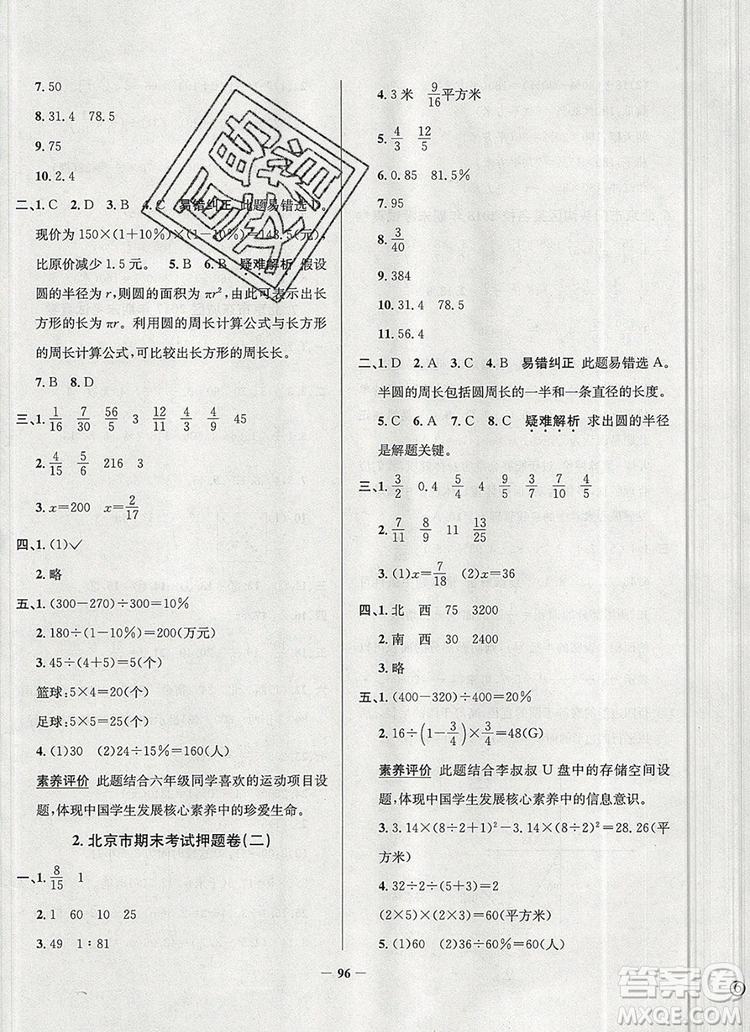 7.50
8.31.4 78.5
9.75
10.2.4
二、1.C 2.D 3.B 4.C 易错纠正 此题易错选 D。
现价为 150×(1+10%)×(1-10%)=148.5(元),
比原价减少 1.5 元。 5.B 6.B 疑难解析 假设
圆的半径为 r,则圆的面积为 πr²,由此可表示出长
方形的长为 πr。利用圆的周长计算公式与长方形
的周长计算公式,可比较出长方形的周长长。
7.B 8.D
三、1. 1/16 7/30 56/5 3 12/11 4/3 9/4 45
2. 4/15 5/6 216 3
3. x=200 x=2/17
四、1.(1)✓
2.略
五、1.(300-270)÷300=10%
2.180÷(1-10%)=200(万元)
3.45÷(4+5)=5(个)
篮球:5×4=20(个)
足球:5×5=25(个)
4.(1)30 (2)24÷15%=160(人)
素养评价 此题结合六年级同学喜欢的运动项目设
题,体现中国学生发展核心素养中的珍爱生命。
2.北京市期末考试押题卷(二)
一、1. 8/15 1
2.1 60 10 25
3.49 1∶81
4.3 米 9/16 平方米
5. 4/3 12/5
6.0.85 81.5%
7.95
8. 3/40
9.384
10.31.4 78.5
11.56.4
二、1.D 2.C 3.C 4.B 易错纠正 此题易错选 A。
半圆的周长包括圆周长的一半和一条直径的长度。
5.C 6.A 7.B 8.C 疑难解析 求出圆的半径
是解题关键。
三、1. 3/2 0.4 5/7 4/7 9/7 4/5
2. 7/11 8/9 11 0
3.(1)x=7/18 (2)x=36
四、1.北 西 75 3200
2.南 西 30 2400
3.略
五、1.(400-320)÷400=20%
2.16÷(1-3/4)×3/4=48(G)
素养评价 此题结合李叔叔 U 盘中的存储空间设
题,体现中国学生发展核心素养中的信息意识。
3.3.14×(6÷2)×(6÷2)=28.26
(平方米)
4.32÷2÷(5+3)=2
(2×5)×(2×3)=60(平方米)
5.(1)60 (2)36÷60%=60(人)
96
答案卷
MXQE.COM